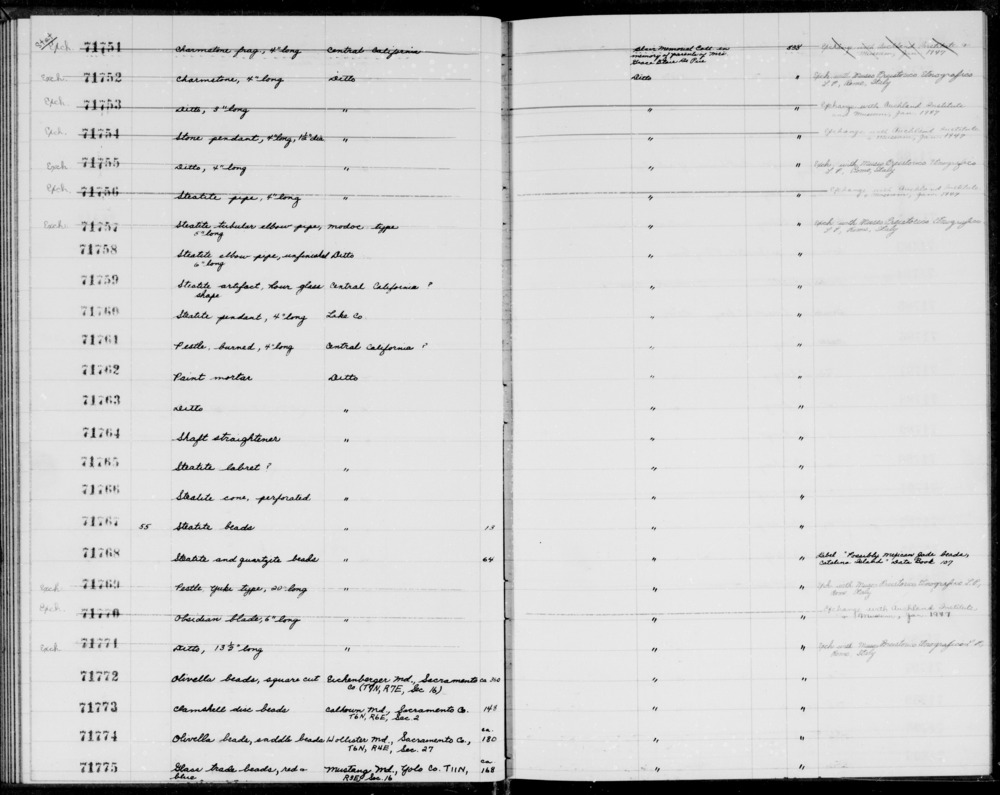 Exch. 71751 Charmstone frag., 4" long Central California Blair Memorial Coll. in 555 Exchange with Auckland Institute &
memory of parents of Mrs. 1947
Grace Blair De Pue
Exch. 71752 Charmstone, 4" long Ditto Ditto " Exch. with Museo Preistorico Etnografico
L.P., Rome, Italy
Exch. 71753 Ditto, 3" long " " Exchange with Auckland Institute
and Museum, Jan. 1947
Exch. 71754 Stone pendant, 4" long, 1½" dia. " " Exchange with Auckland Institute
& Museum, Jan. 1947
Exch. 71755 Ditto, 4" long " " " Exch. with Museo Preistorico Etnografico
L.P., Rome, Italy
Exch. 71756 Steatite pipe, 4" long " " Exchange with Auckland Institute
& Museum, Jan. 1947
Exch. 71757 Steatite tubular elbow pipe, Modoc type " " Exch. with Museo Preistorico Etnografico
5" long L.P., Rome, Italy
71758 Steatite elbow pipe, unfinished Ditto " "
6" long
71759 Steatite artifact, hour glass Central California ? " "
shape
71760 Steatite pendant, 4" long Lake Co. " "
71761 Pestle, burned, 4" long Central California ? " "
71762 Paint mortar Ditto " "
71763 Ditto " " "
71764 Shaft straightener " " "
71765 Steatite labret ? " " "
71766 Steatite cone, perforated " " "
71767 55 Steatite beads " 13 " "
71768 Steatite and quartzite beads " 64 " " Label "Possibly Mexican jade beads,
Catalina Island" Data Book 107
Exch. 71769 Pestle, Yuki type, 20" long " " " Exch. with Museo Preistorico Etnografico L.P.,
Rome, Italy
Exch. 71770 Obsidian blade, 6" long " " " Exchange with Auckland Institute
& Museum, Jan. 1947
Exch. 71771 Ditto, 13½" long " " " Exch. with Museo Preistorico Etnografico L.P.,
Rome, Italy
71772 Olivella beads, square cut Eichenberger Md., Sacramento ca 360 " "
Co (T9N, R7E, Sec 16)
71773 Clamshell disc beads Calhoun Md., Sacramento Co. 148 " "
T6N, R6E, Sec 2
71774 Olivella beads, saddle beads Hollister Md., Sacramento Co., ca. 180 " "
T6N, R4E, Sec. 27
71775 Glass trade beads, red & Mustang Md., Yolo Co. T11N, ca 168 " "
blue R3E, Sec. 16